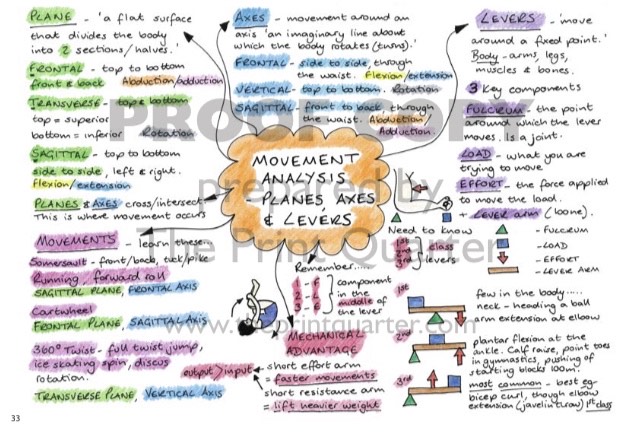 PLANE - 'a flat surface
that divides the body
into 2 sections/halves.'
FRONTAL - top to bottom
front & back Abduction/adduction
TRANSVERSE - top & bottom
top = superior
bottom = inferior Rotation
SAGITTAL - top to bottom
side to side, left & right.
Flexion/extension
PLANES & AXES cross/intersect
This is where movement occurs
AXES - movement around an
axis 'an imaginary line about
which the body rotates (turns).'
FRONTAL - side to side, through
the waist. Flexion/extension
VERTICAL - top to bottom. Rotation
SAGITTAL - front to back through
the waist. Abduction/
Adduction.
LEVERS - 'move
around a fixed point.'
Body - arms, legs,
muscles & bones.
3 Key components
FULCRUM - the point
around which the lever
moves. Is a joint.
LOAD - what you are
trying to move
EFFORT - the force applied
to move the load.
+ LEVER arm (bone).
MOVEMENT
ANALYSIS
- PLANES, AXES
& LEVERS
MOVEMENTS - learn these...
Somersault - front/back, tuck/pike
Running/forward roll
SAGITTAL PLANE, FRONTAL AXIS
Cartwheel
FRONTAL PLANE, SAGITTAL AXIS
360° Twist - full twist jump,
ice skating spin, discus
rotation.
TRANSVERSE PLANE, VERTICAL AXIS
Remember....
1 - F
2 - L
3 - E
component
in the
middle of
the lever
MECHANICAL
ADVANTAGE
output > input
short effort arm
= faster movements
short resistance arm
= lift heavier weight
Need to know
1st
2nd
3rd
class
levers
- FULCRUM
- LOAD
- EFFORT
- LEVER ARM
1st
few in the body.....
neck - heading a ball
arm extension at elbow
2nd
plantar flexion at the
ankle. Calf raise, point toes
in gymnastics, pushing of
starting blocks 100m.
3rd
most common - best eg-
bicep curl, though elbow
extension (javelin thraw) 1st class
PROOF COPY
prepared by
The Print Quarter
www.theprintquarter.com
33